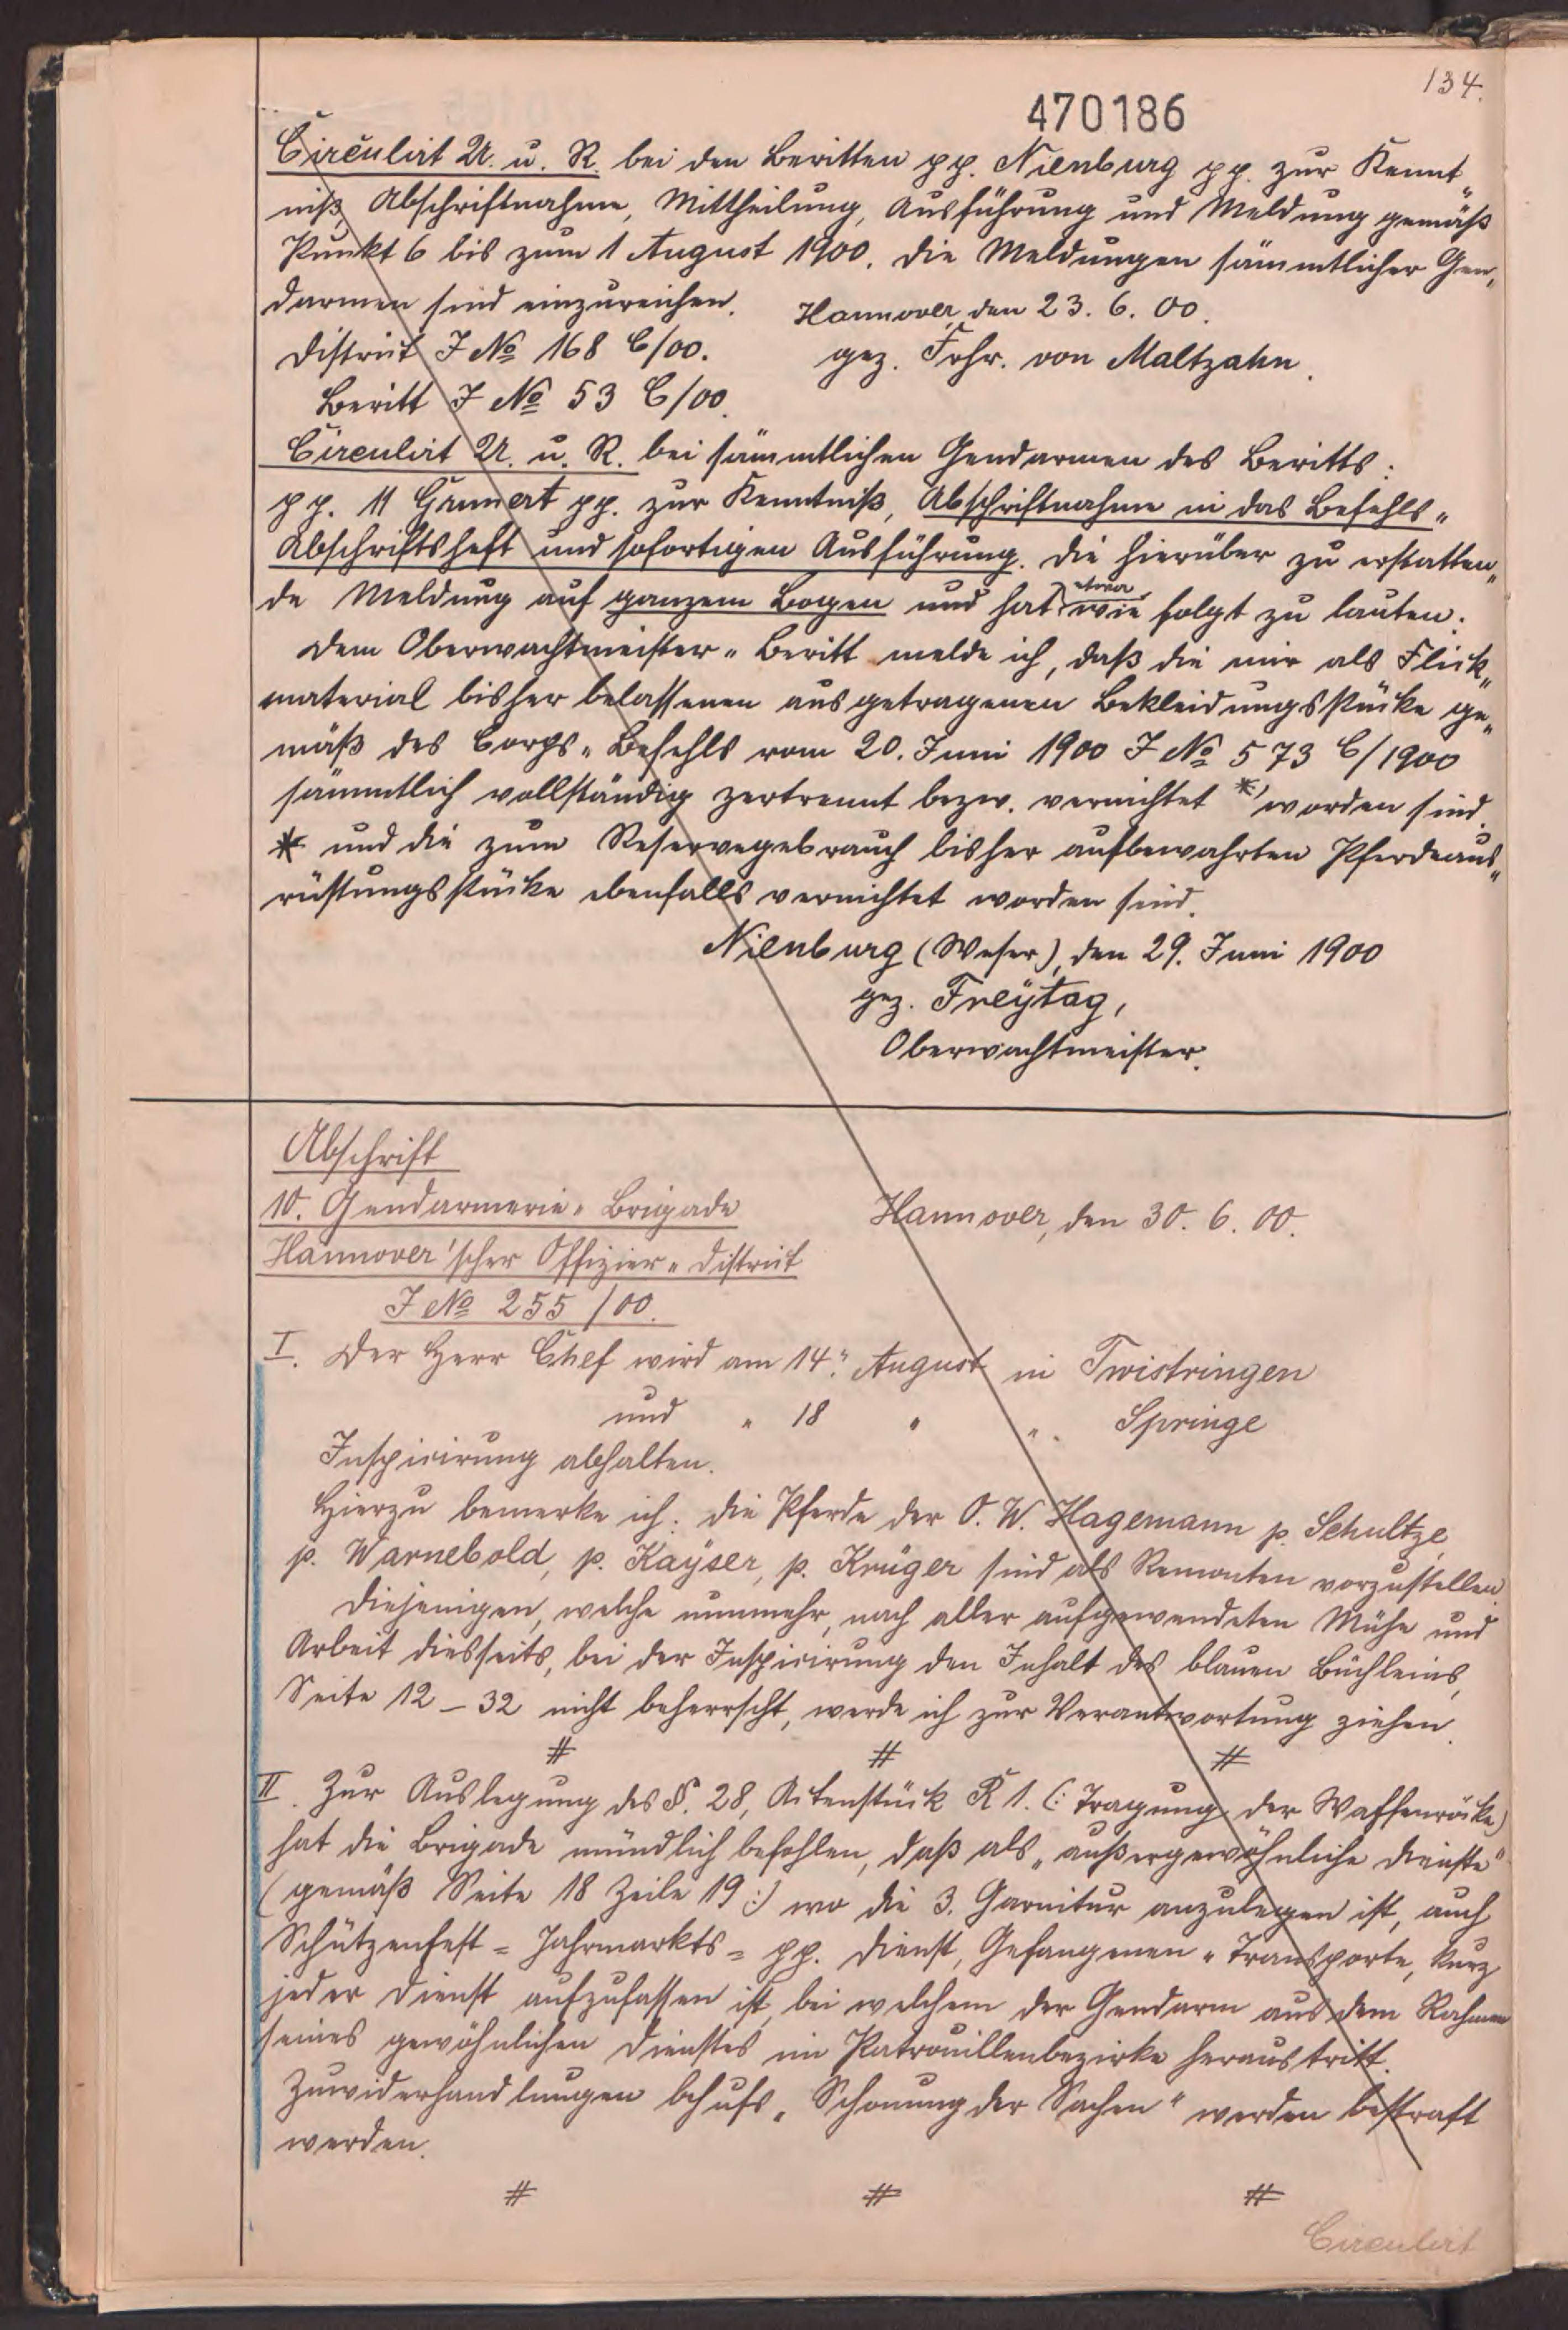 134.
470186
Circulirt U. u. R. bei den Beritten pp. Nienburg pp. zur Kennt„
niß, Abschriftnahme, Mittheilung, Ausführung und Meldung gemäß
Punkt 6 bis zum 1 August 1900. Die Meldungen sämmtlicher Gen„
darmen sind einzureichen. Hannover, den 23. 6. 00.
District J No 168 C/00. gez. Frhr. von Maltzahn.
Beritt J No 53 C/00.
Circulirt U. u. R. bei sämmtlichen Gendarmen des Beritts:
pp. 11 Grunert pp. zur Kenntniß, Abschriftnahme in das Befehls„
Abschriftsheft und sofortigen Ausführung. Die hierüber zu erstatten„
de Meldung auf ganzem Bogen und hat etwa wie folgt zu lauten:
Dem Oberwachtmeister„Beritt melde ich, daß die mir als Flick„
material bisher belassenen ausgetragenen Bekleidungsstücke ge„
mäß des Corps„Befehls vom 20. Juni 1900 J No 573 C/1900
sämmtlich vollständig zertrennt bezw. vernichtet *) worden sind.
* und die zum Reservegebrauch bisher aufbewahrten Pferdeaus„
rüstungsstücke ebenfalls vernichtet worden sind.
Nienburg (Weser), den 29. Juni 1900
gez. Freÿtag,
Oberwachtmeister.
Abschrift
10. Gendarmerie„Brigade Hannover, den 30. 6. 00.
Hannover'scher Offizier„District
J No 255/00.
I. Der Herr Chef wird am 14." August in Twistringen
und " 18 " ". Springe
Inspicirung abhalten.
Hierzu bemerke ich: die Pferde der O. W. Hagemann p. Schultze,
p. Warnebold, p. Kaÿser, p. Krüger sind als Remonten vorzustellen.
Diejenigen, welche nunmehr, nach aller aufgewendeten Mühe und
Arbeit diesseits, bei der Inspicirung den Inhalt des blauen Büchleins,
Seite 12–32 nicht beherrscht, werde ich zur Verantwortung ziehen.
# # #
II. Zur Auslegung des §. 28, Actenstück R 1. (: Tragung der Waffenröcke)
hat die Brigade mündlich befohlen, daß als „außergewöhnliche Dienste"
(gemäß Seite 18 Zeile 19:) wo die 3. Garnitur anzulegen ist, auch
Schützenfest= Jahrmarkts= pp. Dienst, Gefangenen„Transporte, kurz
jeder Dienst aufzufassen ist, bei welchem der Gendarm aus dem Rahmen
seines gewöhnlichen Dienstes im Patrouillenbezirke heraustritt.
Zuwiderhandlungen behufs „Schonung der Sachen" werden bestraft
werden.
# # #
Circulirt